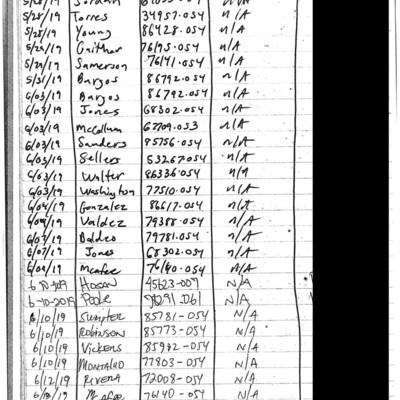 5/28/19 Jordan
5/28/19 Torres 34957.054 n/A
5/28/19 Young 86428.054 n/A
5/29/19 Gaither 76195.054 n/A
5/29/19 Samerson 76141.054 n/A
5/31/19 Burgos 86792.054 n/A
6/03/19 Burgos 86792.054 n/A
6/03/19 Jones 68302.054 n/A
6/03/19 McCollum 67709.053 n/A
6/03/19 Sanders 85756.054 n/A
6/03/19 Sellers 53267.054 n/A
6/03/19 Walter 86336.054 n/A
6/03/19 Washington 77510.054 n/A
6/04/19 Gonzalez 86617.054 n/A
6/04/19 Valdez 79388.054 n/A
6/07/19 Baldeo 79781.054 n/A
6/07/19 Jones 68302.054 n/A
6/08/19 Mcafee 76140.054 n/A
6-10-2019 Hogan 45623-007 N/A
6-10-2019 Poole N/A
6/10/19 Sumpter 85781-054 N/A
6/10/19 Robinson 85773-054 N/A
6/10/19 Vickers 85942-054 N/A
6/10/19 Montalvo 77803-054 N/A
6/12/19 Rivera 72008-054 N/A
Mcafee 76140-054 N/A